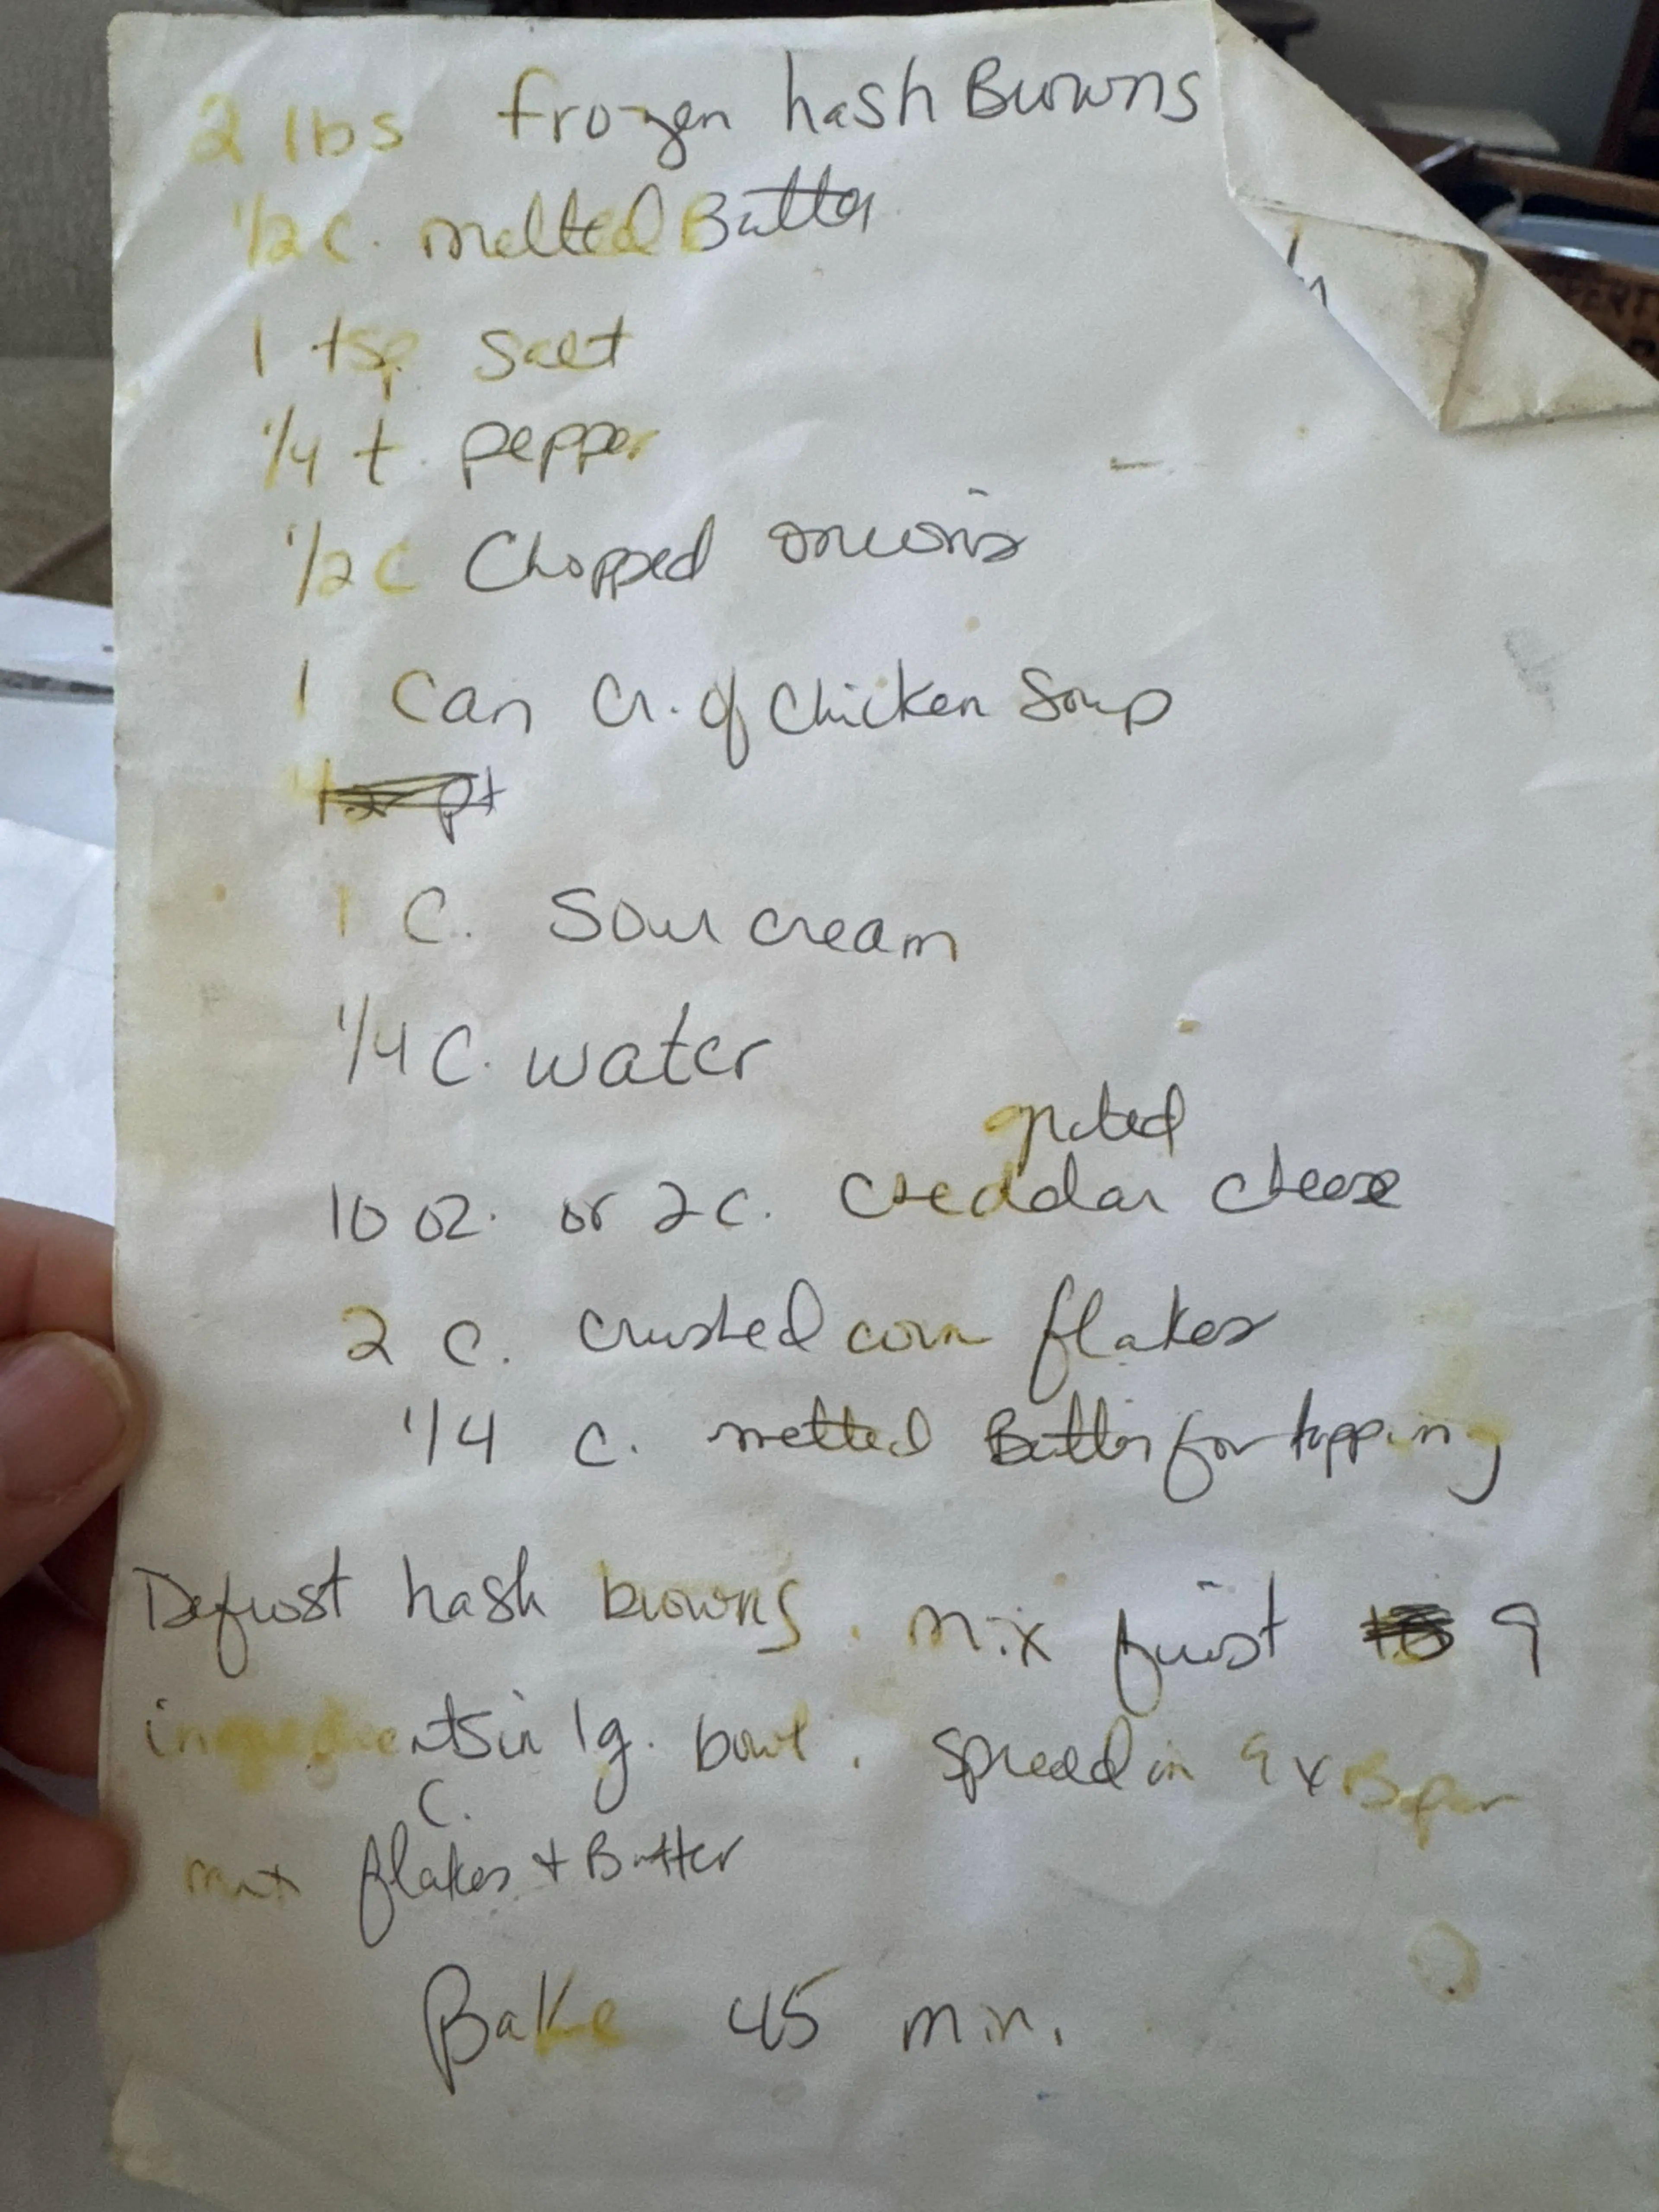 2 lbs frozen hash Browns
1/2 c. melted Butter
1 tsp. Salt
1/4 t. pepper
1/2 c Chopped onions
1 Can Cr. of Chicken Soup
pt
1 C. Sour cream
1/4 C. water
grated
10 oz. or 2 c. Cheddar cheese
2 c. crushed corn flakes
1/4 c. melted Butter for topping
Defrost hash browns. mix first 9
ingredients in lg. bowl. Spread in 9 x 13 pan
C.
mix flakes + Butter
Bake 45 min.